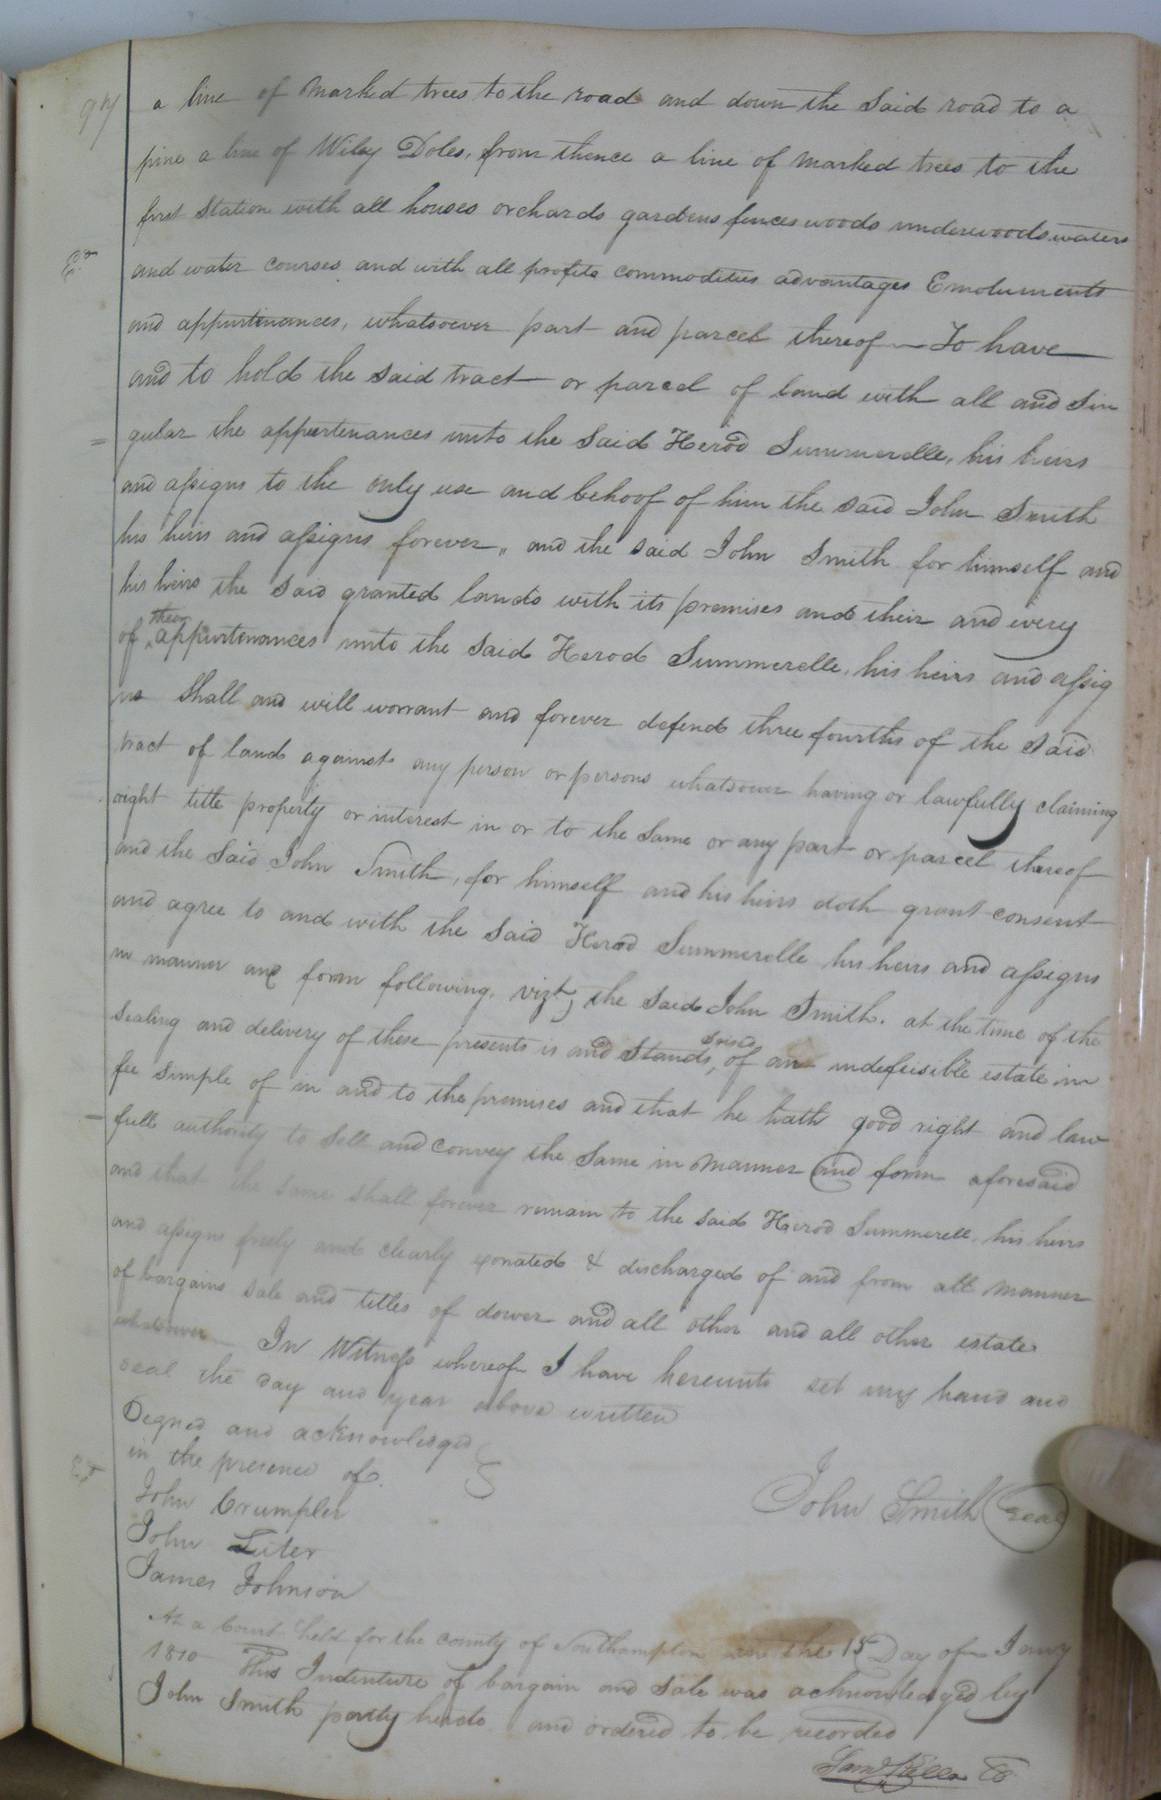 97
a line of marked trees to the road and down the said road to a
pine a line of Wiley Doles, from thence a line of marked trees to the
first station with all houses orchards gardens fences woods underwoods waters
and water courses and with all profits commodities advantages Emoluments
and appurtenances, whatsoever part and parcel thereof — To have
and to hold the said tract or parcel of land with all and sin
gular the appurtenances unto the said Herod Summerelle, his heirs
and assigns to the only use and behoof of him the said John Smith
his heirs and assigns forever, and the said John Smith for himself and
his heirs the said granted lands with its premises and their and every
of their appurtenances unto the said Herod Summerelle, his heirs and assig
ns shall and will worrant and forever defend three fourths of the said
tract of land against any person or persons whatsoever having or lawfully claiming
right title property or interest in or to the same or any part or parcel thereof
and the said John Smith, for himself and his heirs doth grant consent
and agree to and with the said Herod Summerelle his heirs and assigns
in manner and form following. vizt, the said John Smith. at the time of the
sealing and delivery of these presents is and stands, seised of an indefeisible estate in
fee simple of in and to the premises and that he hath good right and law
full authority to sell and convey the same in manner and form aforesaid
and that the same shall forever remain to the said Herod Summerell his heirs
and assigns freely and clearly exonated & discharged of and from all manner
of bargains sale and titles of dower and all other and all other estate
whatsoever In Witness whereof I have hereunto set my hand and
seal the day and year above written
Segned and acknowledged
in the presence of
John Smith Seal
John Crumpler
John Luter
James Johnson
At a Court held for the county of Southampton on the 15 Day of Jany
1810 This Indenture of bargain and sale was acknowledged by
John Smith party hereto and ordered to be recorded
Saml Kello